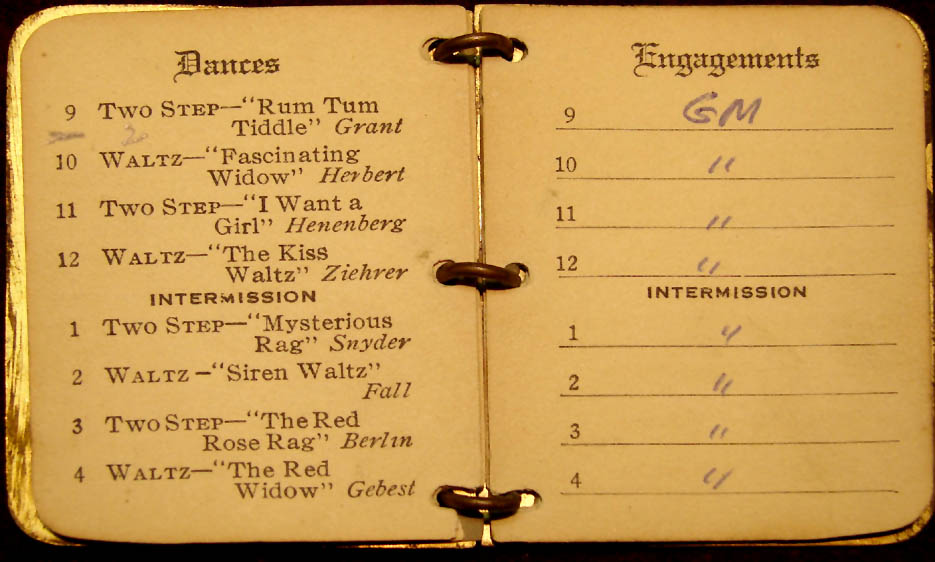 Dances
9 Two Step—"Rum Tum
Tiddle" Grant
10 Waltz—"Fascinating
Widow" Herbert
11 Two Step—"I Want a
Girl" Henenberg
12 Waltz—"The Kiss
Waltz" Ziehrer
INTERMISSION
1 Two Step—"Mysterious
Rag" Snyder
2 Waltz—"Siren Waltz"
Fall
3 Two Step—"The Red
Rose Rag" Berlin
4 Waltz—"The Red
Widow" Gebest
Engagements
9 GM
10 "
11 "
12 "
INTERMISSION
1 "
2 "
3 "
4 "